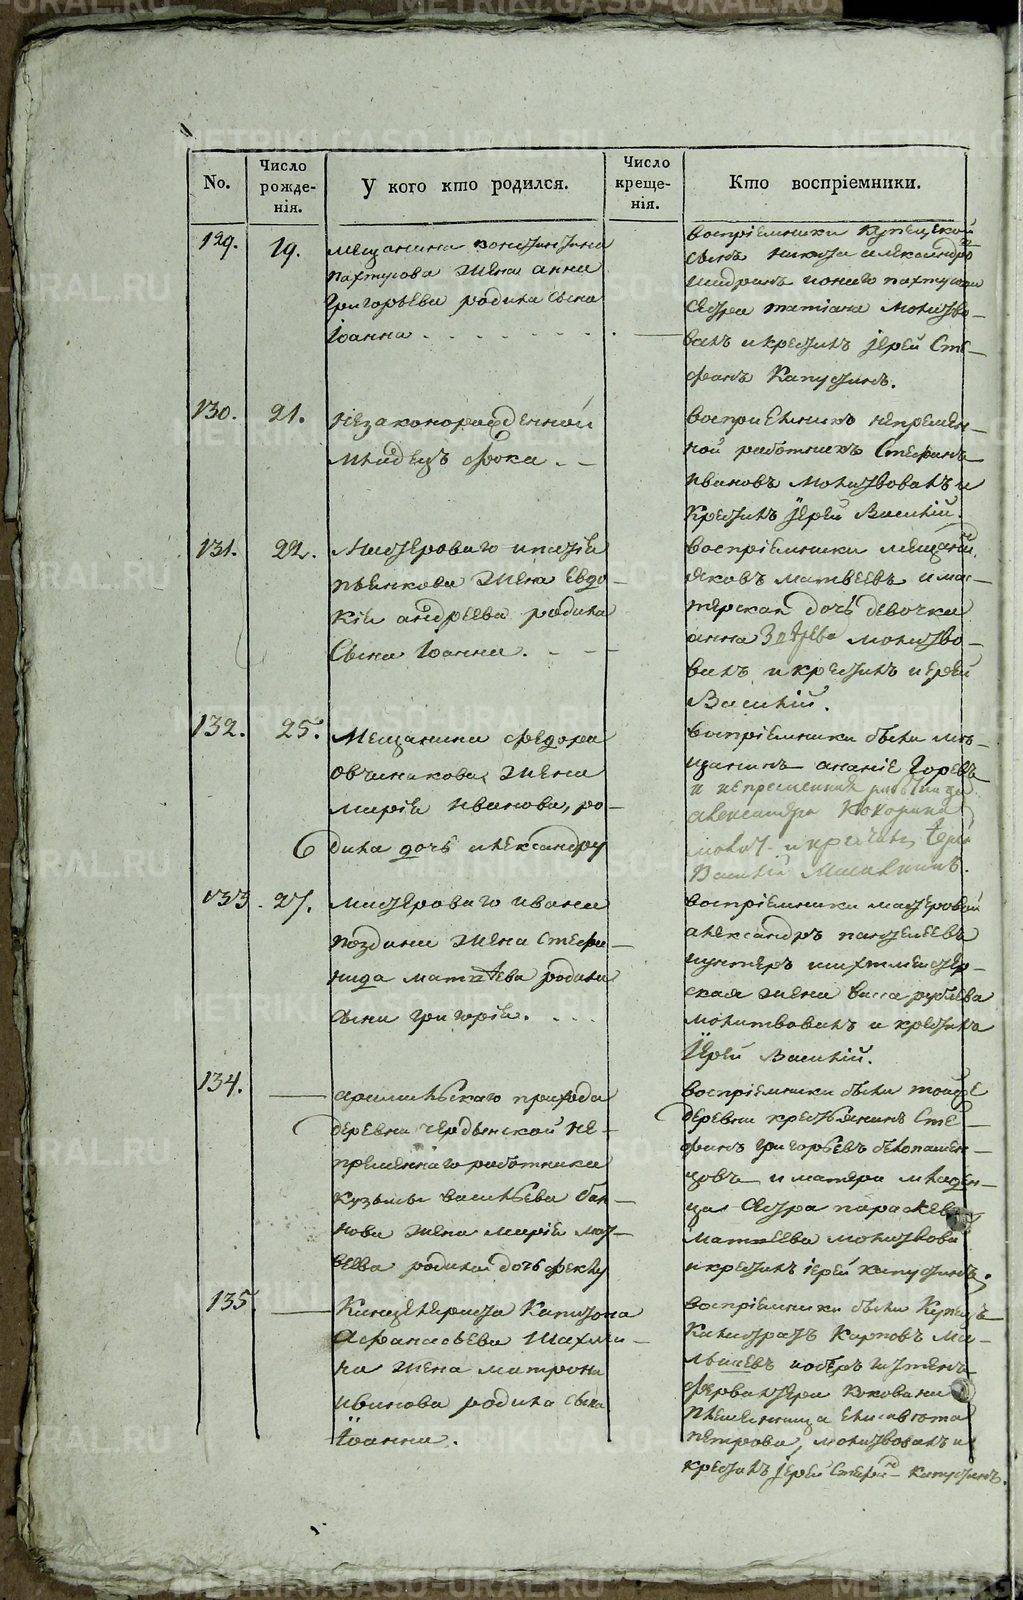 No.
Число рожде-
нія.
У кого кто родился.
Число креще-
нія.
Кто воспріемники.
129.
19.
мещанина константина
пахтусова жена анна
григорьева родила сына
Іоанна
воспріемники купецкой
сынъ никита александро
Сестра татіана молитво-
валъ и крестилъ іерей Сте-
фанъ Капустинъ.
130.
21.
незаконорожденной
младецъ фока.
восприемникъ непремен-
ной работникъ Стефанъ
ивановъ молитвовалъ и
крестилъ іерей Василій.
131.
22.
Мастероваго игнатія
пьянкова жена Евдо-
кія андреева родила
Сына Іоанна.
воспріемники мещанин
яковъ матвеевъ и мас-
терская дочь девочка
анна молитво-
валъ и крестилъ иерей
Василій.
132.
25.
Мещанина федора
овчинникова жена
марія иванова, ро-
дила дочь александру
воспріемники были мѣ-
щанинъ ананіе Горевъ
и непременная работница
александра Кокорина
молит. и крестилъ Іерей
Василій
133.
27.
мастероваго ивана
поздина жена стефа-
нида матвѣева родила
сына григорія.
воспріемники мастеровой
александръ пантелеевъ
иунтеръ шихтмейстер-
ская жена васса рублева
молитвовалъ и крестилъ
Іерей Василій.
134.
арамильскаго прихода
деревни чердынской не-
пременнаго работника
кузьмы васильева бан-
нова жена марія мат-
веева родила дочь феклу
воспріемники были тойже
деревни крестьянинъ Сте-
фанъ григорьевъ белопашен-
цовъ и матери младен-
ца Сестра параскева
матвеева молитвова
и крестилъ іерей капустинъ.
135.
Канцеляриста Капитона
Афанасьева Шахма-
на жена матрона
иванова родила сына
Іоанна.
воспріемники были Купецъ
Калистратъ Карповъ Ма-
лышевъ иоберъ гиттенъ
фервалтера Коковина
племенница елисавета
петрова, молитвовалъ и
крестилъ іерей Стефанъ Капустинъ.